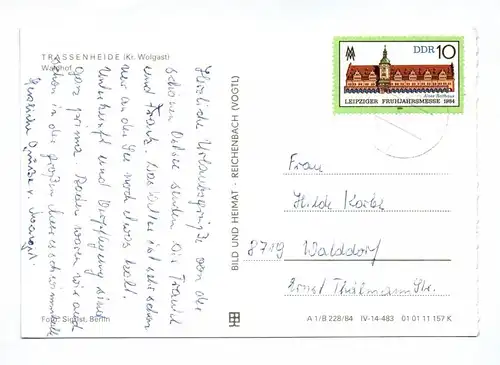 TRASSENHEIDE (Kr. Wolgast)
Waldhof
Herzliche Urlaubsgrüße von der
schönen Ostsee senden Dir Traudel
und Frank. Das Wetter ist sehr schön
nur an der See noch etwas kalt.
Unterkunft und Verpflegung sind
ganz prima. Baden waren wir auch
schon in der großen Meeresschwimmhalle
Herzliche Grüße v. Margot.
Foto: Sigrist, Berlin
BILD UND HEIMAT · REICHENBACH (VOGTL)
DDR 10
Altes Rathaus
LEIPZIGER FRÜHJAHRSMESSE 1984
Frau
Hilde Korbe
8719 Walddorf
Ernst Thälmann Str.
A 1/B 228/84 IV-14-483 01 01 11 157 K